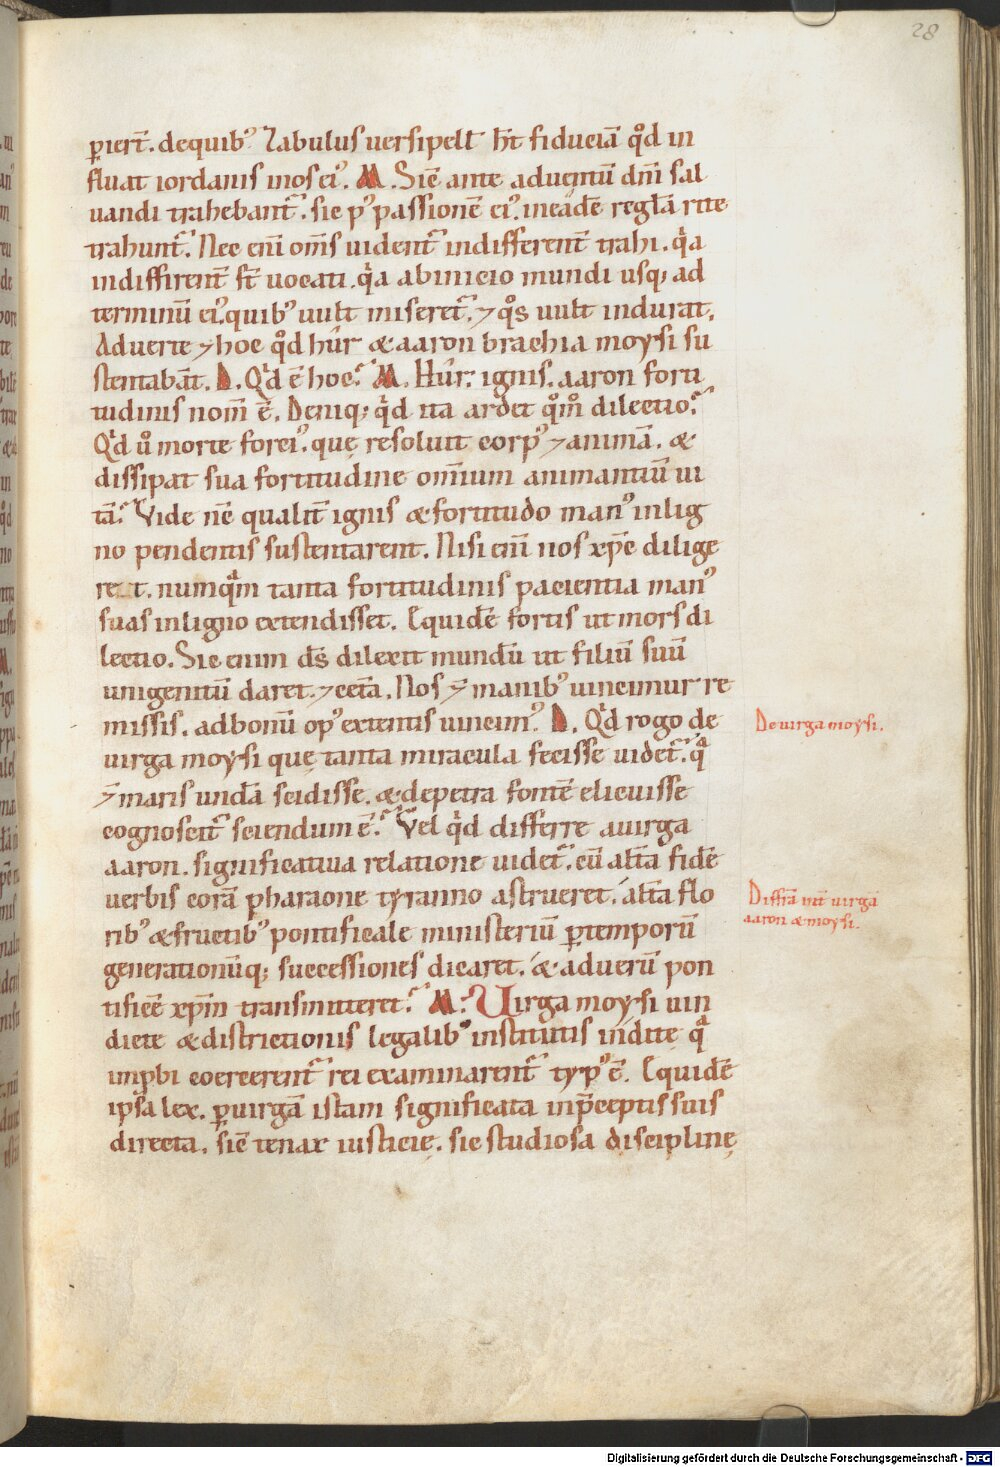 28
ꝑiert̄. dequib᷒ Zabulus uersipell̄ h̄t fiduciā qd̊ in
fluat iordanis inos ei᷒. M. Sic̄ ante aduentū dn̄i sal
uandi trahebant᷑. sic p᷒ passionē ei᷒. ineadē regłā rite
trahunt᷑. Nec eni̅ om̄s uident᷑ indifferent̄ trahi. qa̍
indiffirent̄ st̄ uocati. qa̍ abinicio mundi usq; ad
terminū ei᷒. quib᷒ uult miseret᷑. ⁊ qo̊s uult indurat.
Aduerte ⁊ hoc qd̊ húr & aaron brachia moysi su
stentabāt. D. Qd̍ ē hoc? M. Húr. ignis. aaron forti
tudinis nom̄ ē. Deniq; qd̍ ita ardet qm̊̄ dilectio?
Qd̍ ů morte forci᷒. quę resoluit corp᷒ ⁊ animā. &
dissipat sua fortitudine om̄ium animantiū ui
tā? Vide nc̄ qualit̄ ignis & fortitudo man᷒ inlig
no pendentis sustentarent. Nisi eni̅ nos xp̄c dilige
ret. numqm̄ tanta fortitudinis pacientia man᷒
suas inligno extendisset. Equidē fortis ut mors di
lectio. Sic enim ds̄ dilexit mundū ut filiū suū
unigenitū daret. ⁊ cet̄a. Nos ⁊̄ manib᷒ uincimur re
missis. adbonū op᷒ extentis uincim᷒. D. Qd̍ rogo de
uirga moysi quę tanta miracula fecisse uidet᷑. qͣ
⁊̄ maris undā scidisse. & depetra fontē elicuisse
cognoscit᷑ sciendum ē? Vel qd̍ differre auirga
aaron. significatiua relatione uidet᷑. cū alt̄a fidē
uerbis corā pharaone tyranno astrueret. alt̄a flo
rib᷒ & fructib᷒ pontificale ministeriū ꝑtemporū
generationūq; successiones dicaret. & aduerū pon
tificē xp̄m transmitteret? M. Uirga moysi uin
dicte & districtionis legalib᷒ institutis indite qͣ
inp̄bi coercerent᷑ rei examinarent᷑ typ᷒ ē. Equidē
ipsa lex. ꝑuirgā istam significata inp̄ceptis suis
directa. sic̄ tenax iusticię. sic studiosa disciplinę
De uirga moysi.
Diffr̄a int̄ uirgā
aaron & moysi.
Digitalisierung gefördert durch die Deutsche Forschungsgemeinschaft - DFG